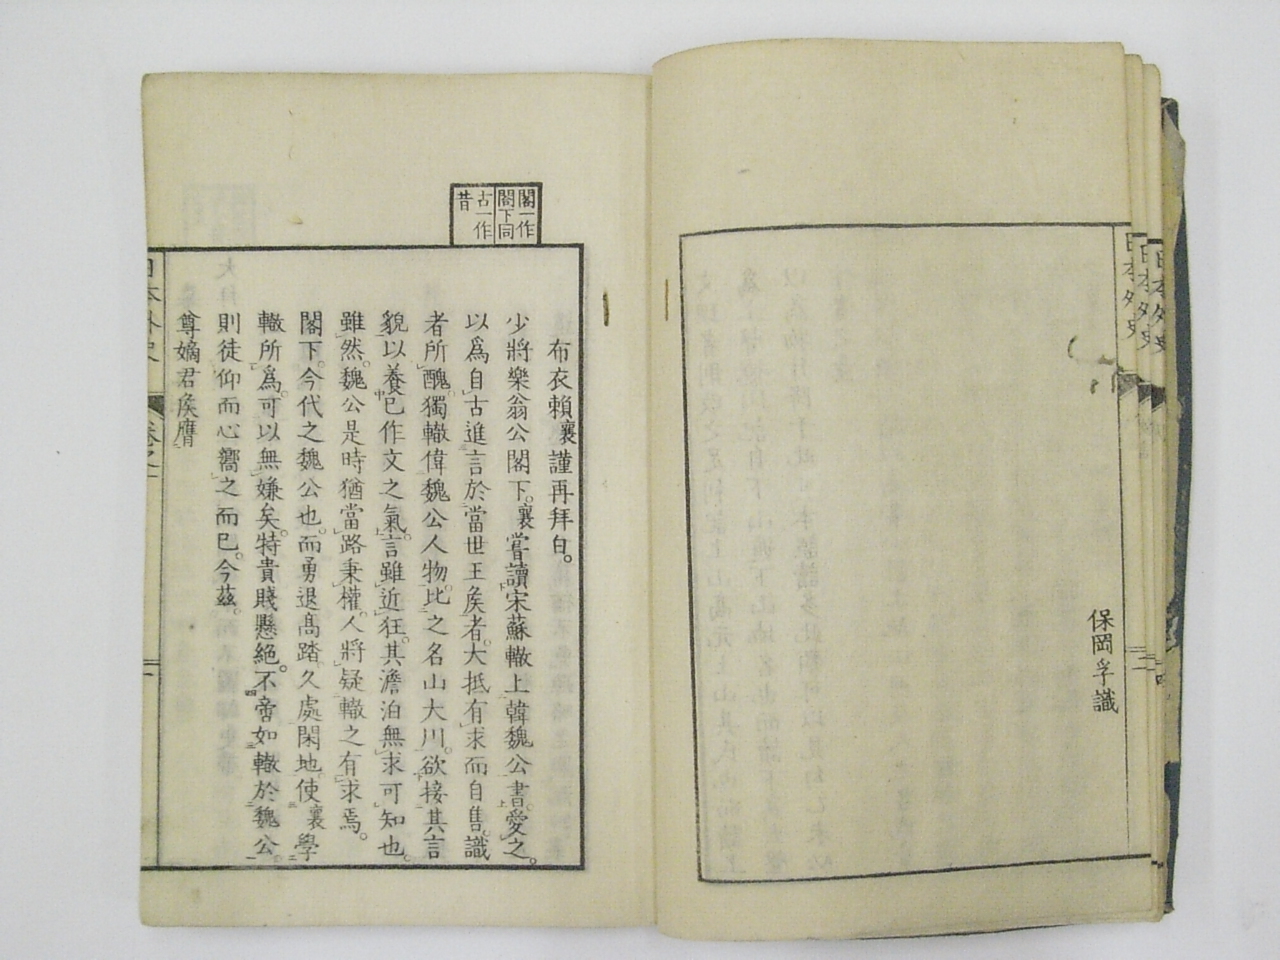 日本外史
日本外史
日本外史
保岡孚識
閣一作
閤下同
古一作
昔
布衣賴襄謹再拜白。
少將樂翁公閣下。襄嘗讀宋蘇轍上韓魏公書。愛之。
以爲自古進言於當世王侯者。大抵有求而自售。識
者所醜。獨轍偉魏公人物。比之名山大川。欲接其言
貌以養己作文之氣。言雖近狂。其澹泊無求可知也。
雖然。魏公是時猶當路秉權。人將疑轍之有求焉。
閣下。今代之魏公也。而勇退高踏。久處閑地。使襄學
轍所爲。可以無嫌矣。特貴賤懸絶。不啻如轍於魏公。
則徒仰而心嚮之而已。今茲。
尊嫡君侯膺
日本外史